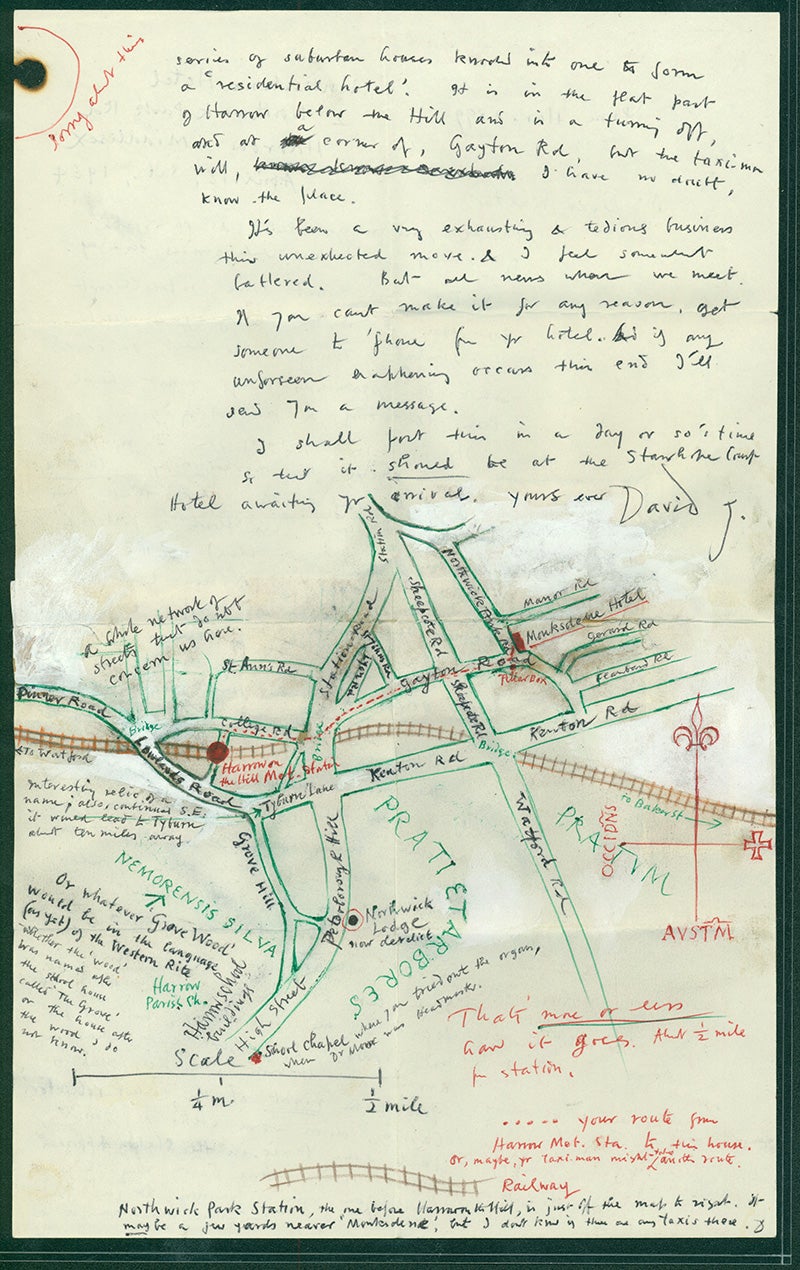 sorry about this
series of suburban houses knocked into one to form
a 'residential hotel'. It is in the flat part
of Harrow below the Hill and is a turning off,
and at a corner of, Gayton Rd, but the taxi-man
will, I have no doubt,
know the place.
It's been a very exhausting & tedious business
this unexpected move & I feel somewhat
battered. But all news when we meet.
If you can't make it for any reason, get
someone to 'phone fm yr hotel. & if any
unforseen happening occurs this end I'll
send you a message.
I shall post this in a day or so's time
so that it should be at the Stanhope Court
Hotel awaiting yr arrival. Yours ever David J.
a whole network of
streets that do not
concern us here.
Station Rd
Sheepcote Rd
Northwick Park Rd
Manor Rd
Monksdene Hotel
Gerard Rd
Flambard Rd
Pillar Box
Station Road
St Ann's Rd
Gayton Road
Sheepcote Rd
Kenton Rd
Pinner Road
Bridge
College Rd
Bridge
Lowlands Road
Harrow on
the Hill Met. Station
to Watford
Kenton Rd
Bridge
Tyburn Lane
to Baker St
interesting relic of a
name; also, continued S.E.
it would lead to Tyburn
about ten miles away
Grove Hill
Peterborough Hill
Watford Rd
PRATI ET ARBORES
PRATVM
OCCIDNS
AVSTM
NEMORENSIS SILVA
Or whatever 'Grove Wood'
would be in the language
(as yet) of the Western Rite
whether the 'wood'
was named after
the school house
called 'The Grove'
or the house after
the wood I do
not know.
Northwick
Lodge
now derelict
Harrow
Parish Ch.
Harrow School
buildings
High Street
School Chapel where you tried out the organ,
when Dr Moore was
Headmaster.
Scale
¼ m.
½ mile
That's more or less
how it goes. Abt ½ mile
fm station.
..... your route from
Harrow Met. Sta. to this house.
Or, maybe, yr taxi-man might take another route.
Railway
Northwick Park Station, the one before Harrow on the Hill, is just off the map to right. It
may be a few yards nearer 'Monksdene', but I don't know if there are any taxis there. D